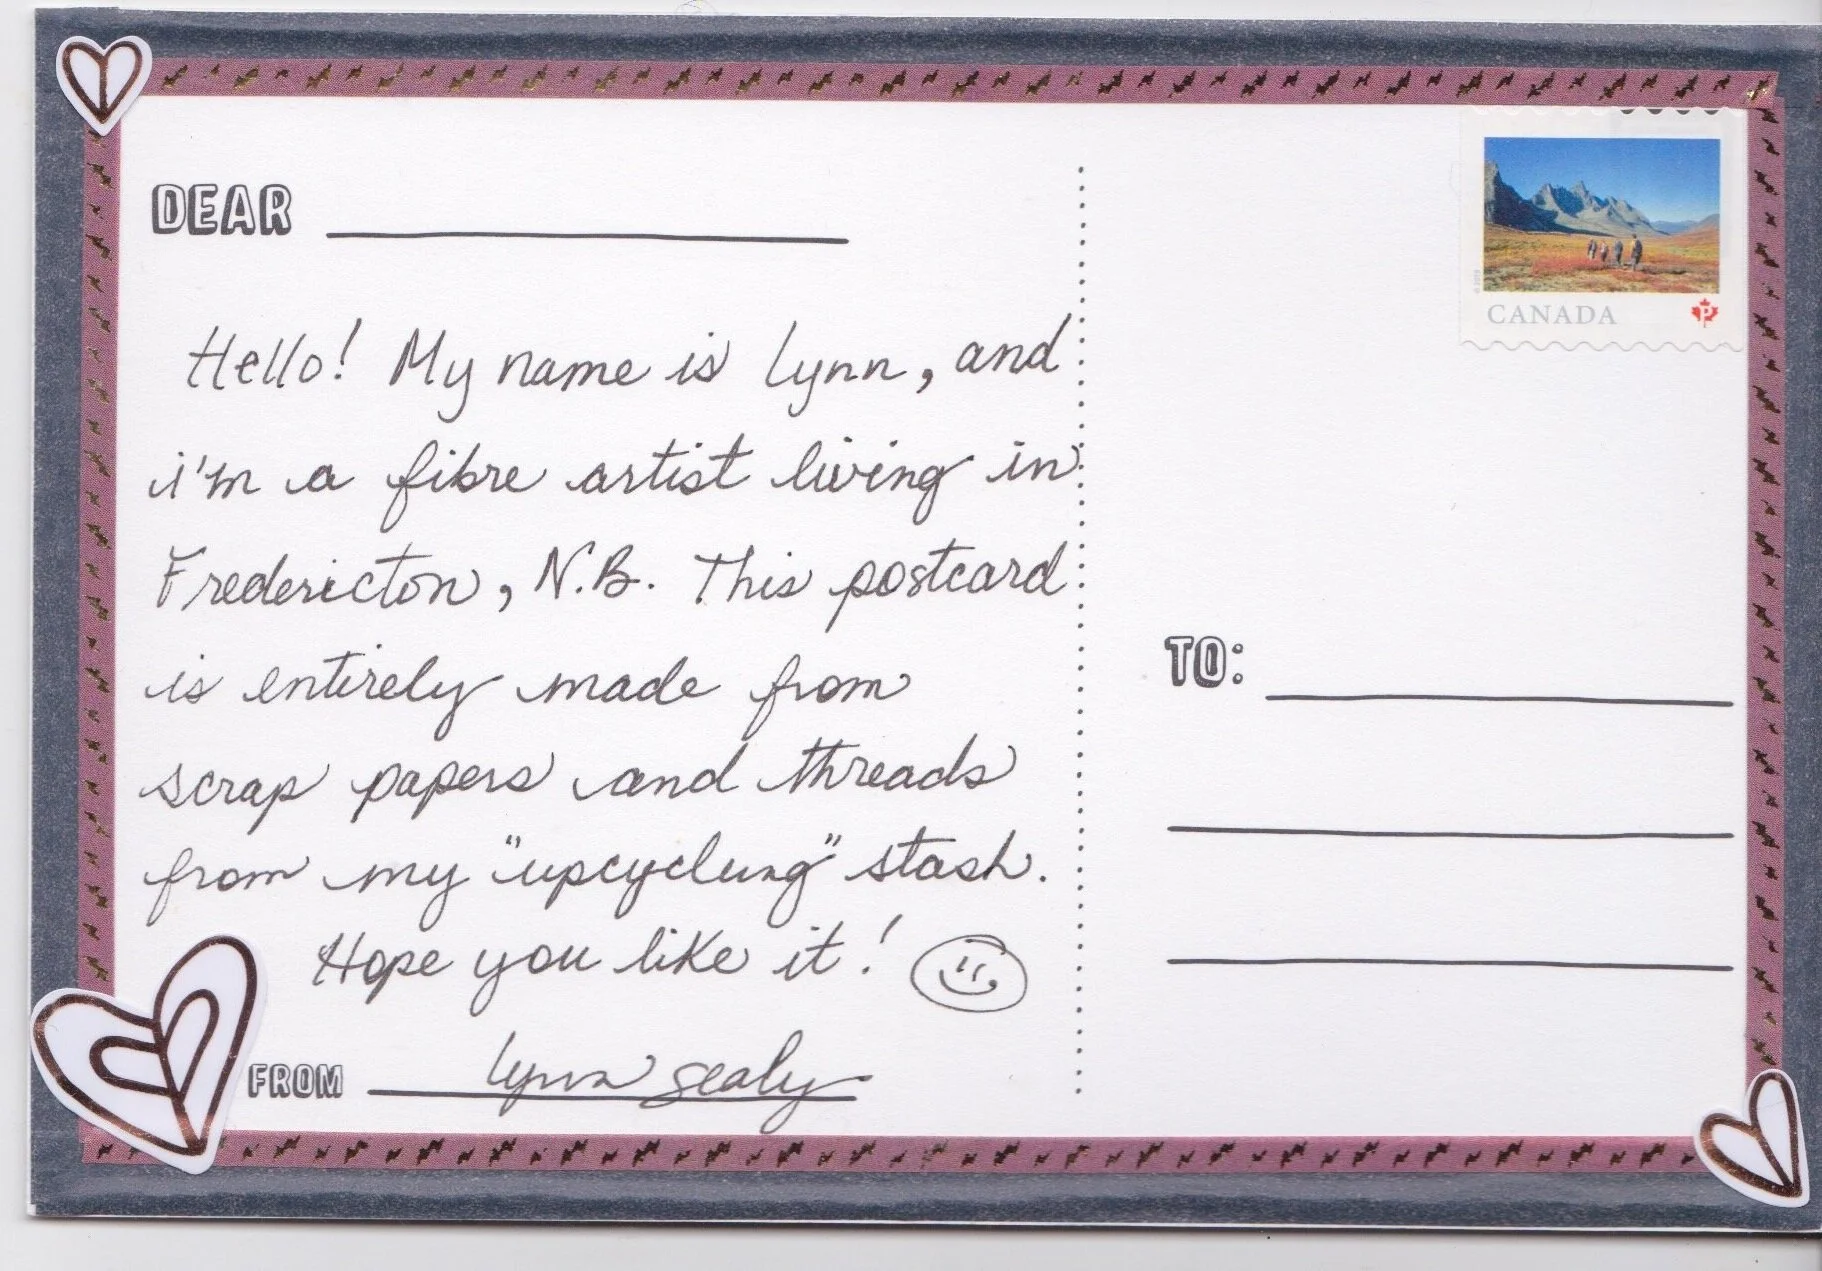 DEAR
Hello! My name is Lynn, and
i'm a fibre artist living in
Fredericton, N.B. This postcard
is entirely made from
scrap papers and threads
from my "upcycling" stash.
Hope you like it!
FROM Lynn Sealy
CANADA
P
TO: